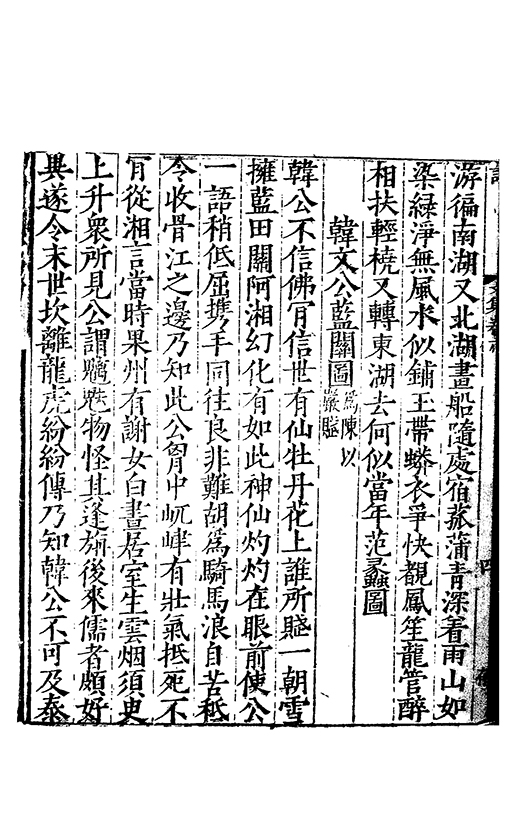 游徧南湖又北湖畫船隨處宿菰蒲青深看雨山如
染綠淨無風水似鋪玉帶蟒衣爭快覩鳳笙龍管醉
相扶輕橈又轉東湖去何似當年范蠡圖
韓文公藍關圖為陳以巖賦
韓公不信佛肎信世有仙牡丹花上誰所賦一朝雪
擁藍田關阿湘幻化有如此神仙灼灼在眼前使公
一語稍低屈携手同往良非難胡為騎馬浪自苦秪
令收骨江之邊乃知此公胷中屼嵂有壯氣抵死不
肎從湘言當時果州有謝女白晝居室生雲烟須臾
上升衆所見公謂魑魅物怪其逢旃後來儒者頗好
異遂令末世坎離龍虎紛紛傳乃知韓公不可及泰